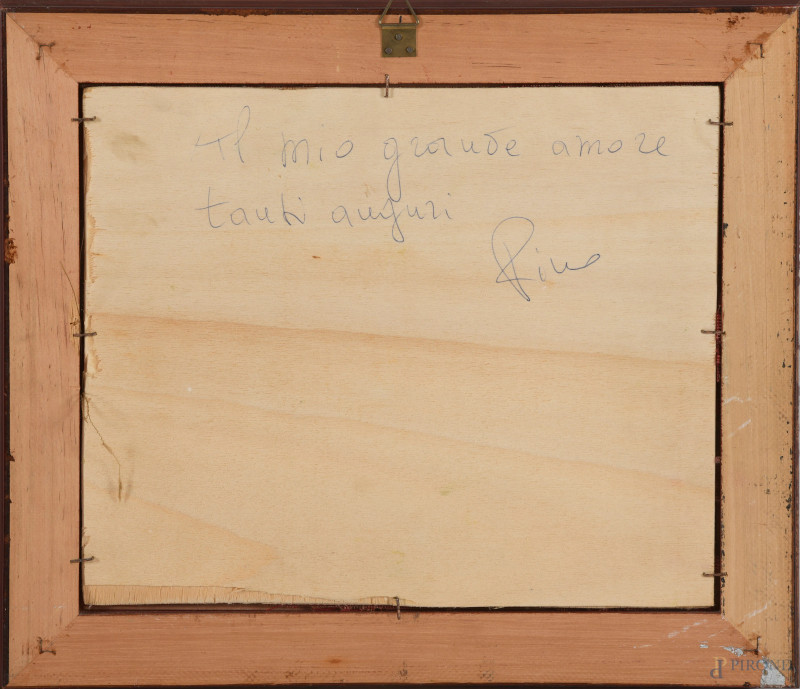 Il mio grande amore
tanti auguri
Pino
PIRONE